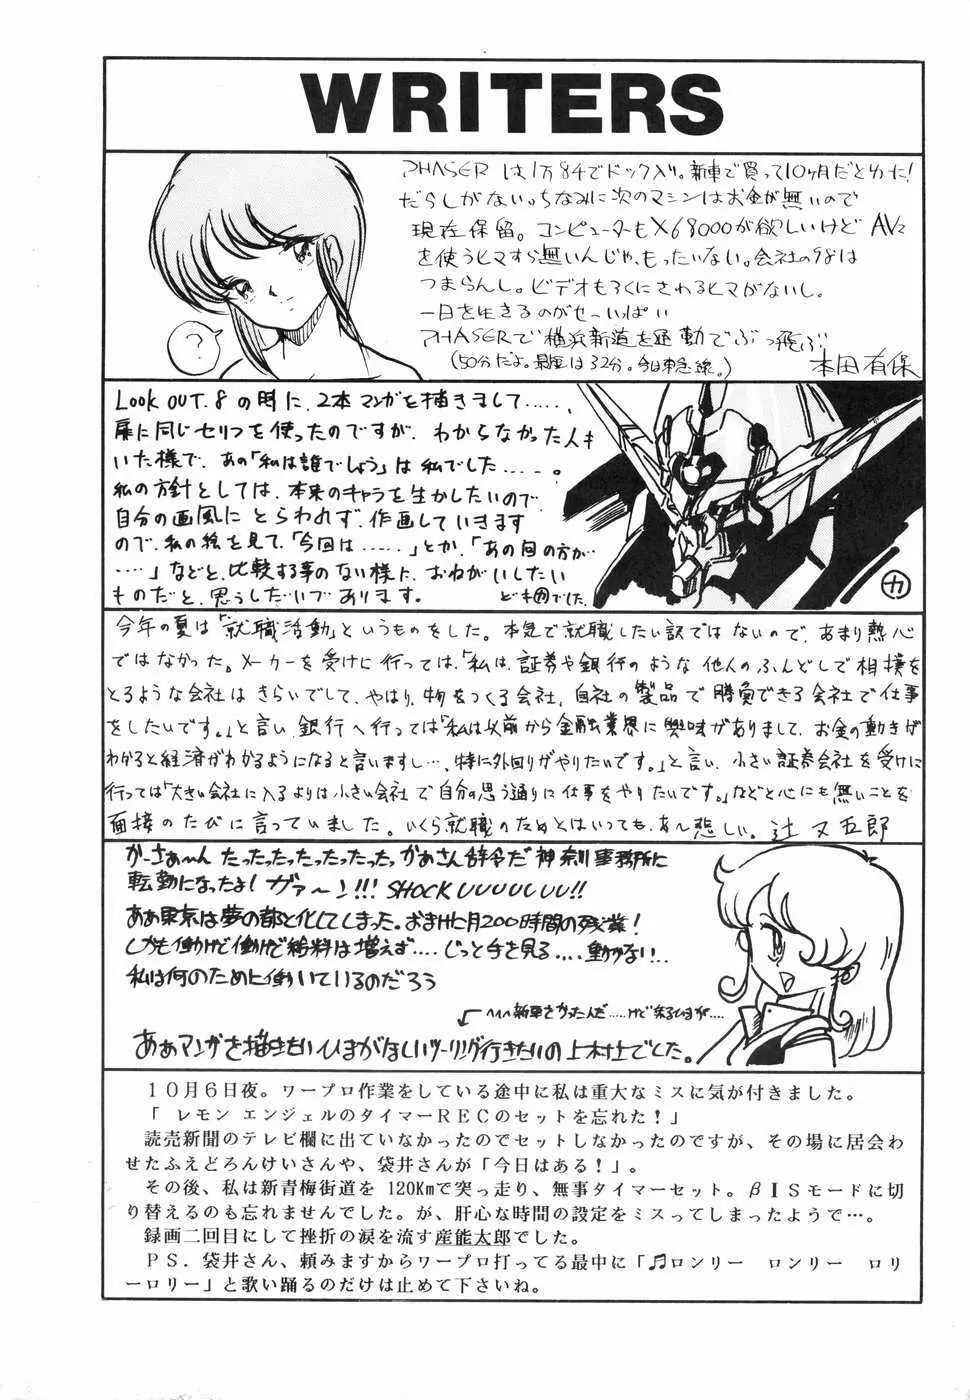 WRITERS
PHASERは1万84でドック入り。新車で買って10ヶ月だとゆーに!
だらしがない。ちなみに次のマシンはお金が無いので
現在保留。コンピューターもX68000が欲しいけどAV2
を使うヒマすら無いんじゃ、もったいない。会社の98は
つまらんし。ビデオもろくにさわるヒマがないし。
一日を生きるのがせーいっぱい
PHASERで横浜新道を通勤でぶっ飛ぶ
(50分だよ。最短は32分。今日東急線。)
本田有保
?
Look OUT.8の時に、2本マンガを描きまして‥‥‥、
扉に同じセリフを使ったのですが、わからなかった人も
いた様で、あの「私は誰でしょう」は私でした‥‥‥。
私の方針としては、本来のキャラを生かしたいので、
自分の画風にとらわれず、作画していきます
ので、私の絵を見て、「今回は‥‥‥」とか、「あの回の方が
‥‥」などと、比較する事のない様に、おねがいしたい
ものだと、思うしだいであります。
でした。
カ
今年の夏は「就職活動」というものをした。本気で就職したい訳ではないので、あまり熱心
ではなかった。メーカーを受けに行っては、「私は、証券や銀行のような他人のふんどしで相撲を
とるような会社はきらいでして、やはり、物をつくる会社、自社の製品で勝負できる会社で仕事
をしたいです。」と言い、銀行へ行っては「私は以前から金融業界に興味がありまして、お金の動きが
わかると経済がわかるようになると言いますし…、特に外回りがやりたいです。」と言い、小さい証券会社を受けに
行っては「大きい会社に入るよりは小さい会社で自分の思う通りに仕事をやりたいです。」などと心にも無いことを
面接のたびに言っていました。いくら就職のためとはいっても、あ〜悲しい。辻又五郎
かーさぁ〜ん たったったったったったった。かあさん辞令だ 神奈川事務所に
転勤になったよ! ガァ〜ン!!! SHOCK UUUUUUU!!
ああ東京は夢の都と化してしまった。おまけに月200時間の残業!
しかも働けど働けど給料は増えず‥‥じっと手を見る‥‥動かない‥
私は何のために働いているのだろう
へへへ新車をかったんだ‥‥‥けど乗るひまが‥‥
あぁマンガを描きたいひまがほしいツーリング行きたいの上村士でした。
10月6日夜。ワープロ作業をしている途中に私は重大なミスに気が付きました。
「レモン エンジェルのタイマーRECのセットを忘れた!」
読売新聞のテレビ欄に出ていなかったのでセットしなかったのですが、その場に居合わ
せたふえどろんけいさんや、袋井さんが「今日はある!」。
その後、私は新青梅街道を 120Kmで突っ走り、無事タイマーセット。βISモードに切
り替えるのも忘れませんでした。が、肝心な時間の設定をミスってしまったようで…。
録画二回目にして挫折の涙を流す産能太郎でした。
PS.袋井さん、頼みますからワープロ打ってる最中に「♬ロンリー ロンリー ロリ
ーロリー」と歌い踊るのだけは止めて下さいね。